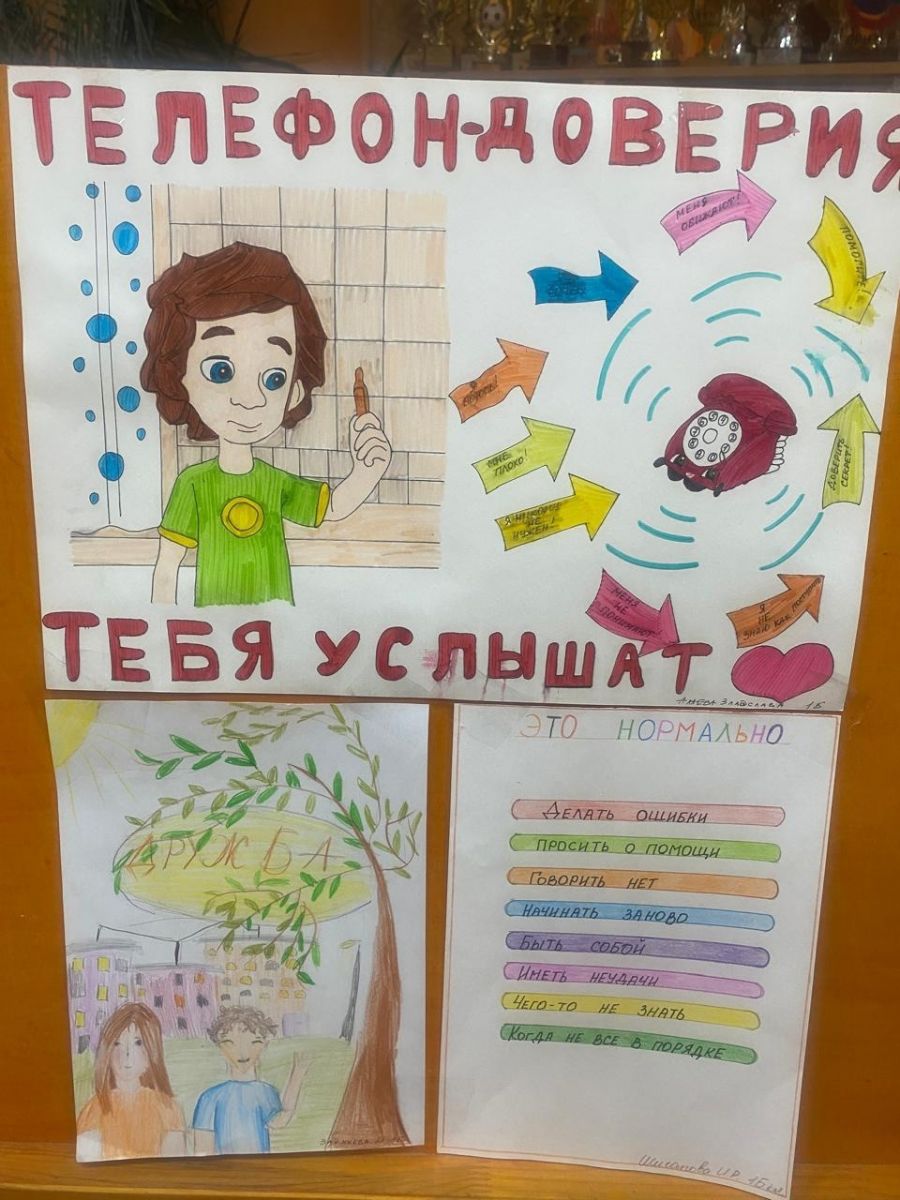 ТЕЛЕФОН-ДОВЕРИЯ
МЕНЯ
ОБИЖАЮТ!
ПОМОГИТЕ!
МНЕ
ПЛОХО!
Я НИКОМУ
НЕ
НУЖЕН!
ДОВЕРИТЬ
СЕКРЕТ!
МЕНЯ
НЕ
ПОНИМАЮТ!
Я
НЕ
ЗНАЮ КАК ПОСТУПИТЬ
ТЕБЯ УСЛЫШАТ
1Б
ДРУЖБА
ЭТО НОРМАЛЬНО
ДЕЛАТЬ ОШИБКИ
ПРОСИТЬ О ПОМОЩИ
ГОВОРИТЬ НЕТ
НАЧИНАТЬ ЗАНОВО
БЫТЬ СОБОЙ
ИМЕТЬ НЕУДАЧИ
ЧЕГО-ТО НЕ ЗНАТЬ
КОГДА НЕ ВСЕ В ПОРЯДКЕ